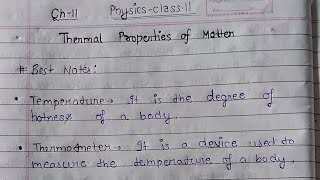 Ch-11 Physics-class-11
• Thermal Properties of Matter
# Best Notes:
• Temperature → It is the degree of
hotness of a body.
• Thermometer → It is a device used to
measure the temperature of a body.